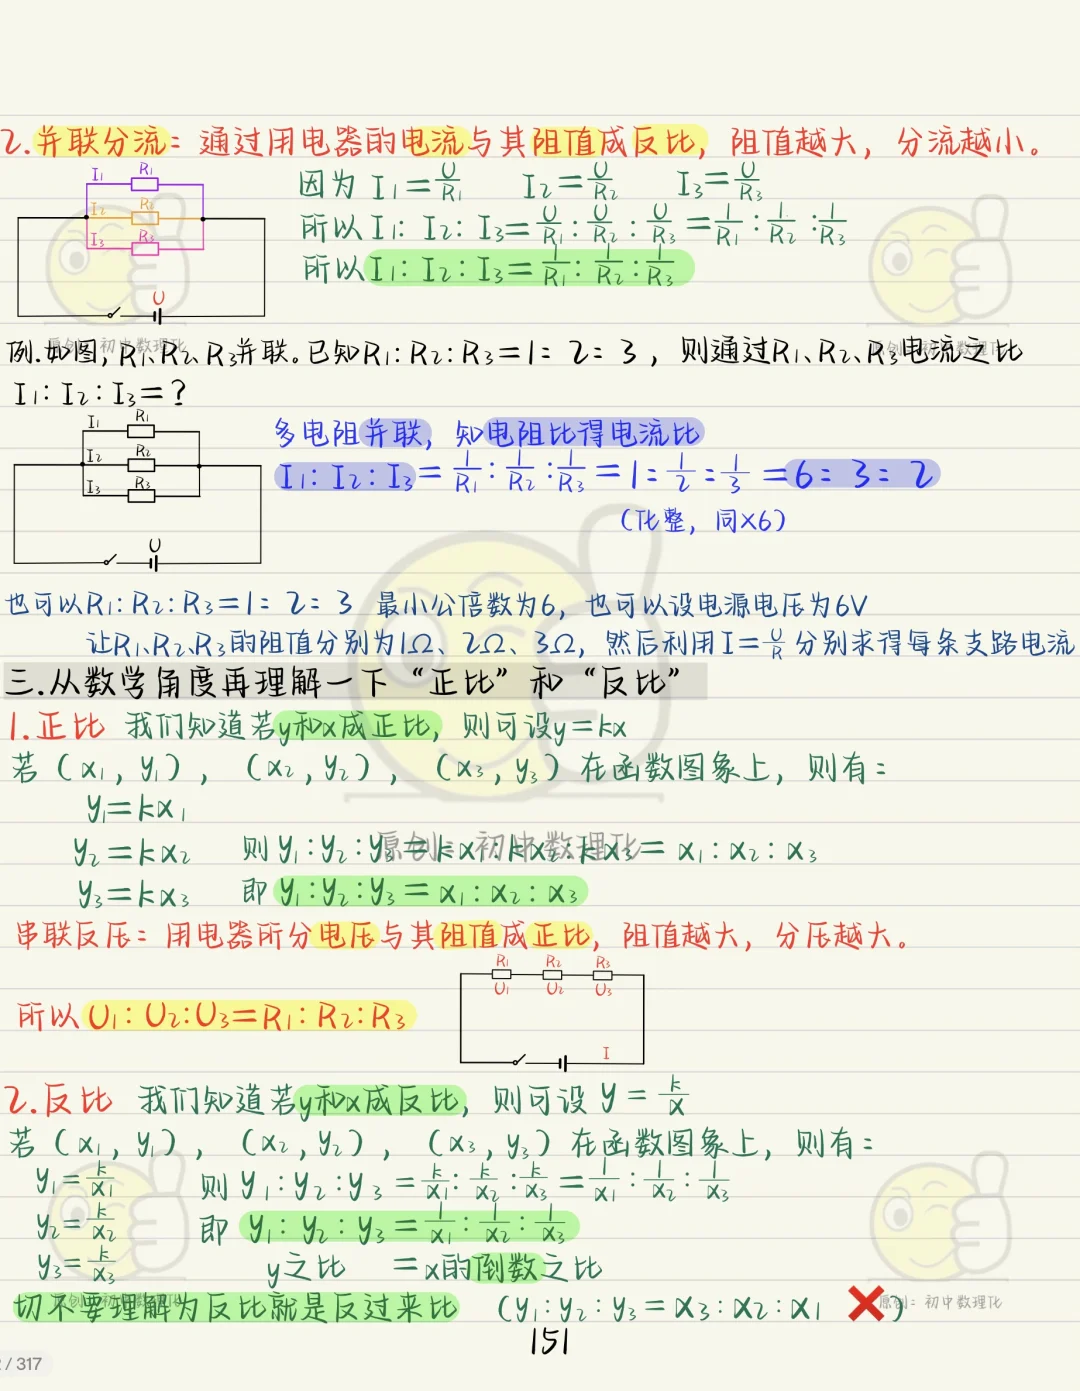 2.并联分流：通过用电器的电流与其阻值成反比，阻值越大，分流越小。
I₁ R₁
I₂ R₂
I₃ R₃
U
因为 I₁=U/R₁ I₂=U/R₂ I₃=U/R₃
所以 I₁:I₂:I₃=U/R₁:U/R₂:U/R₃=1/R₁:1/R₂:1/R₃
所以 I₁:I₂:I₃=1/R₁:1/R₂:1/R₃
例.如图，R₁、R₂、R₃并联。已知R₁:R₂:R₃=1:2:3，则通过R₁、R₂、R₃电流之比
I₁:I₂:I₃=?
I₁ R₁
I₂ R₂
I₃ R₃
U
多电阻并联，知电阻比得电流比
I₁:I₂:I₃=1/R₁:1/R₂:1/R₃=1:1/2:1/3=6:3:2
（化整，同×6）
也可以R₁:R₂:R₃=1:2:3 最小公倍数为6，也可以设电源电压为6V
让R₁、R₂、R₃的阻值分别为1Ω、2Ω、3Ω，然后利用I=U/R分别求得每条支路电流
三.从数学角度再理解一下“正比”和“反比”
1.正比 我们知道若y和x成正比，则可设y=kx
若（x₁,y₁），（x₂,y₂），（x₃,y₃）在函数图象上，则有：
y₁=kx₁
y₂=kx₂ 则 y₁:y₂:y₃=kx₁:kx₂:kx₃=x₁:x₂:x₃
y₃=kx₃ 即 y₁:y₂:y₃=x₁:x₂:x₃
串联反压：用电器所分电压与其阻值成正比，阻值越大，分压越大。
R₁ R₂ R₃
U₁ U₂ U₃
I
所以 U₁:U₂:U₃=R₁:R₂:R₃
2.反比 我们知道若y和x成反比，则可设 y=k/x
若（x₁,y₁），（x₂,y₂），（x₃,y₃）在函数图象上，则有：
y₁=k/x₁ 则 y₁:y₂:y₃=k/x₁:k/x₂:k/x₃=1/x₁:1/x₂:1/x₃
y₂=k/x₂ 即 y₁:y₂:y₃=1/x₁:1/x₂:1/x₃
y₃=k/x₃ y之比 =x的倒数之比
切不要理解为反比就是反过来比 （y₁:y₂:y₃=x₃:x₂:x₁ ❌）
151
原创：初中数理化
原创：初中数理化
原创：初中数理化
原创：初中数理化
原创：初中数理化
/ 317